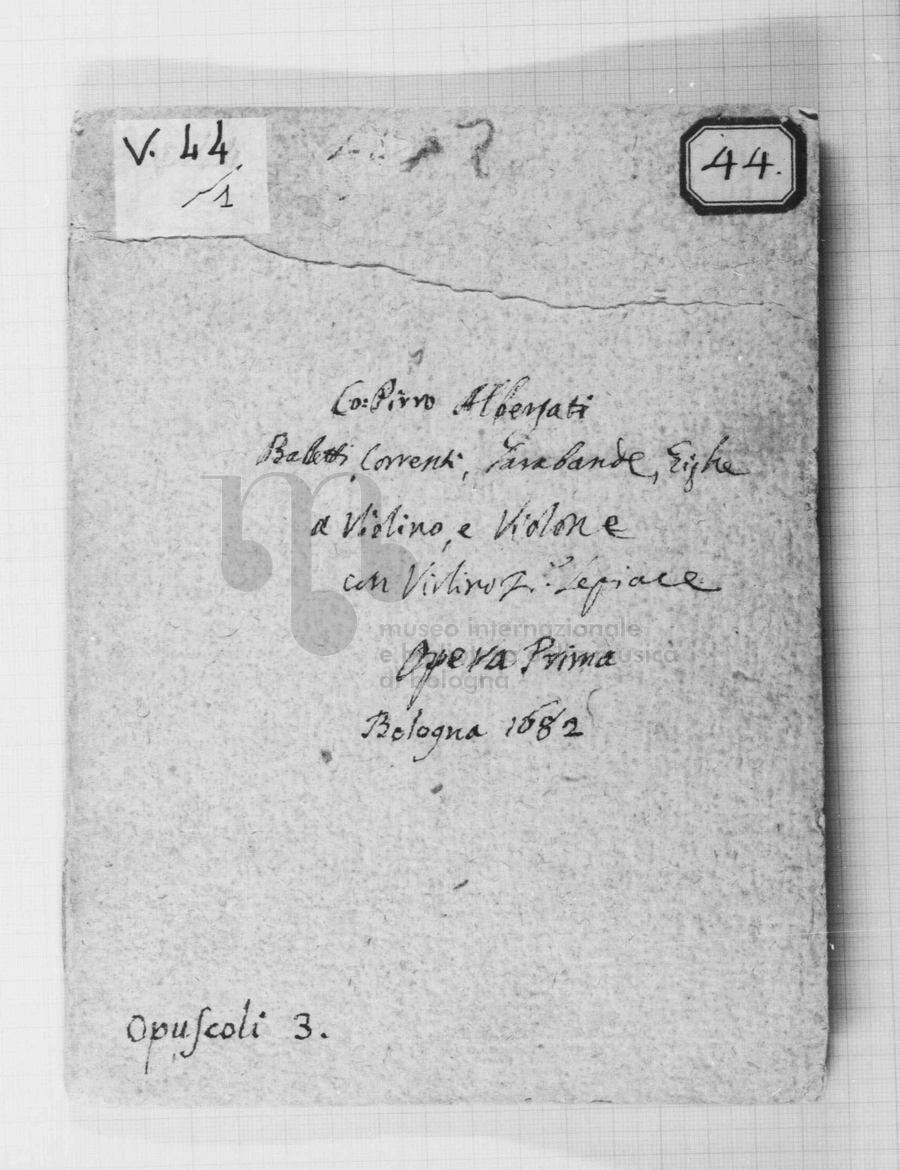 V. 44
/1
44.
Co: Pirro Albergati
Balletti, Correnti, Sarabande, Gighe
a Violino, e Violone
con Violino 2.º se piace
museo internazionale
e biblioteca della musica
di bologna
Opera Prima
Bologna 1682
Opuſcoli 3.